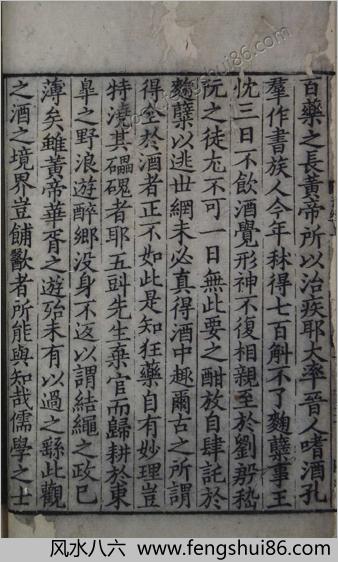 百藥之長黃帝所以治疾耶大率晉人嗜酒孔
羣作書族人今年秫得七百斛不了麴糵事王
忱三日不飲酒覺形神不復相親至於劉殷嵇
阮之徒尤不可一日無此要之酣放自肆託於
麴糵以逃世網未必真得酒中趣爾古之所謂
得全於酒者正不如此是知狂藥自有妙理豈
特澆其礧磈者耶五㪷先生棄官而歸耕於東
臯之野浪遊醉鄉没身不返以謂結繩之政已
薄矣雖黃帝華胥之遊殆未有以過之繇此觀
之酒之境界豈餔歠者所能與知哉儒學之士
fengshui86.com
风水八六 www.fengshui86.com